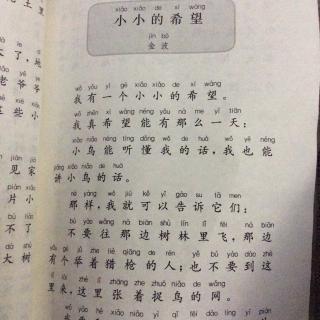 xiǎo xiǎo de xī wàng
小小的希望
jīn bō
金波
wǒ yǒu yí gè xiǎo xiǎo de xī wàng
我有一个小小的希望。
wǒ zhēn xī wàng néng yǒu nà me yì tiān
我真希望能有那么一天：
xiǎo niǎo néng tīng dǒng wǒ de huà wǒ yě néng
小鸟能听懂我的话，我也能
jiǎng xiǎo niǎo de huà
讲小鸟的话。
nà yàng wǒ jiù kě yǐ gào su tā men
那样，我就可以告诉它们：
bú yào wǎng nà biān shù lín lǐ fēi nà biān
不要往那边树林里飞，那边
yǒu gè jǔ zhe liè qiāng de rén yě bú yào dào zhè
有个举着猎枪的人；也不要到这
lǐ lái zhè lǐ zhāng zhe zhuō niǎo de wǎng
里来，这里张着捉鸟的网。
了，地
老爷爷
些小
jiàn jiā
见家
piàn xiǎo
片小
bù liǎo
不了
dà shù
大树